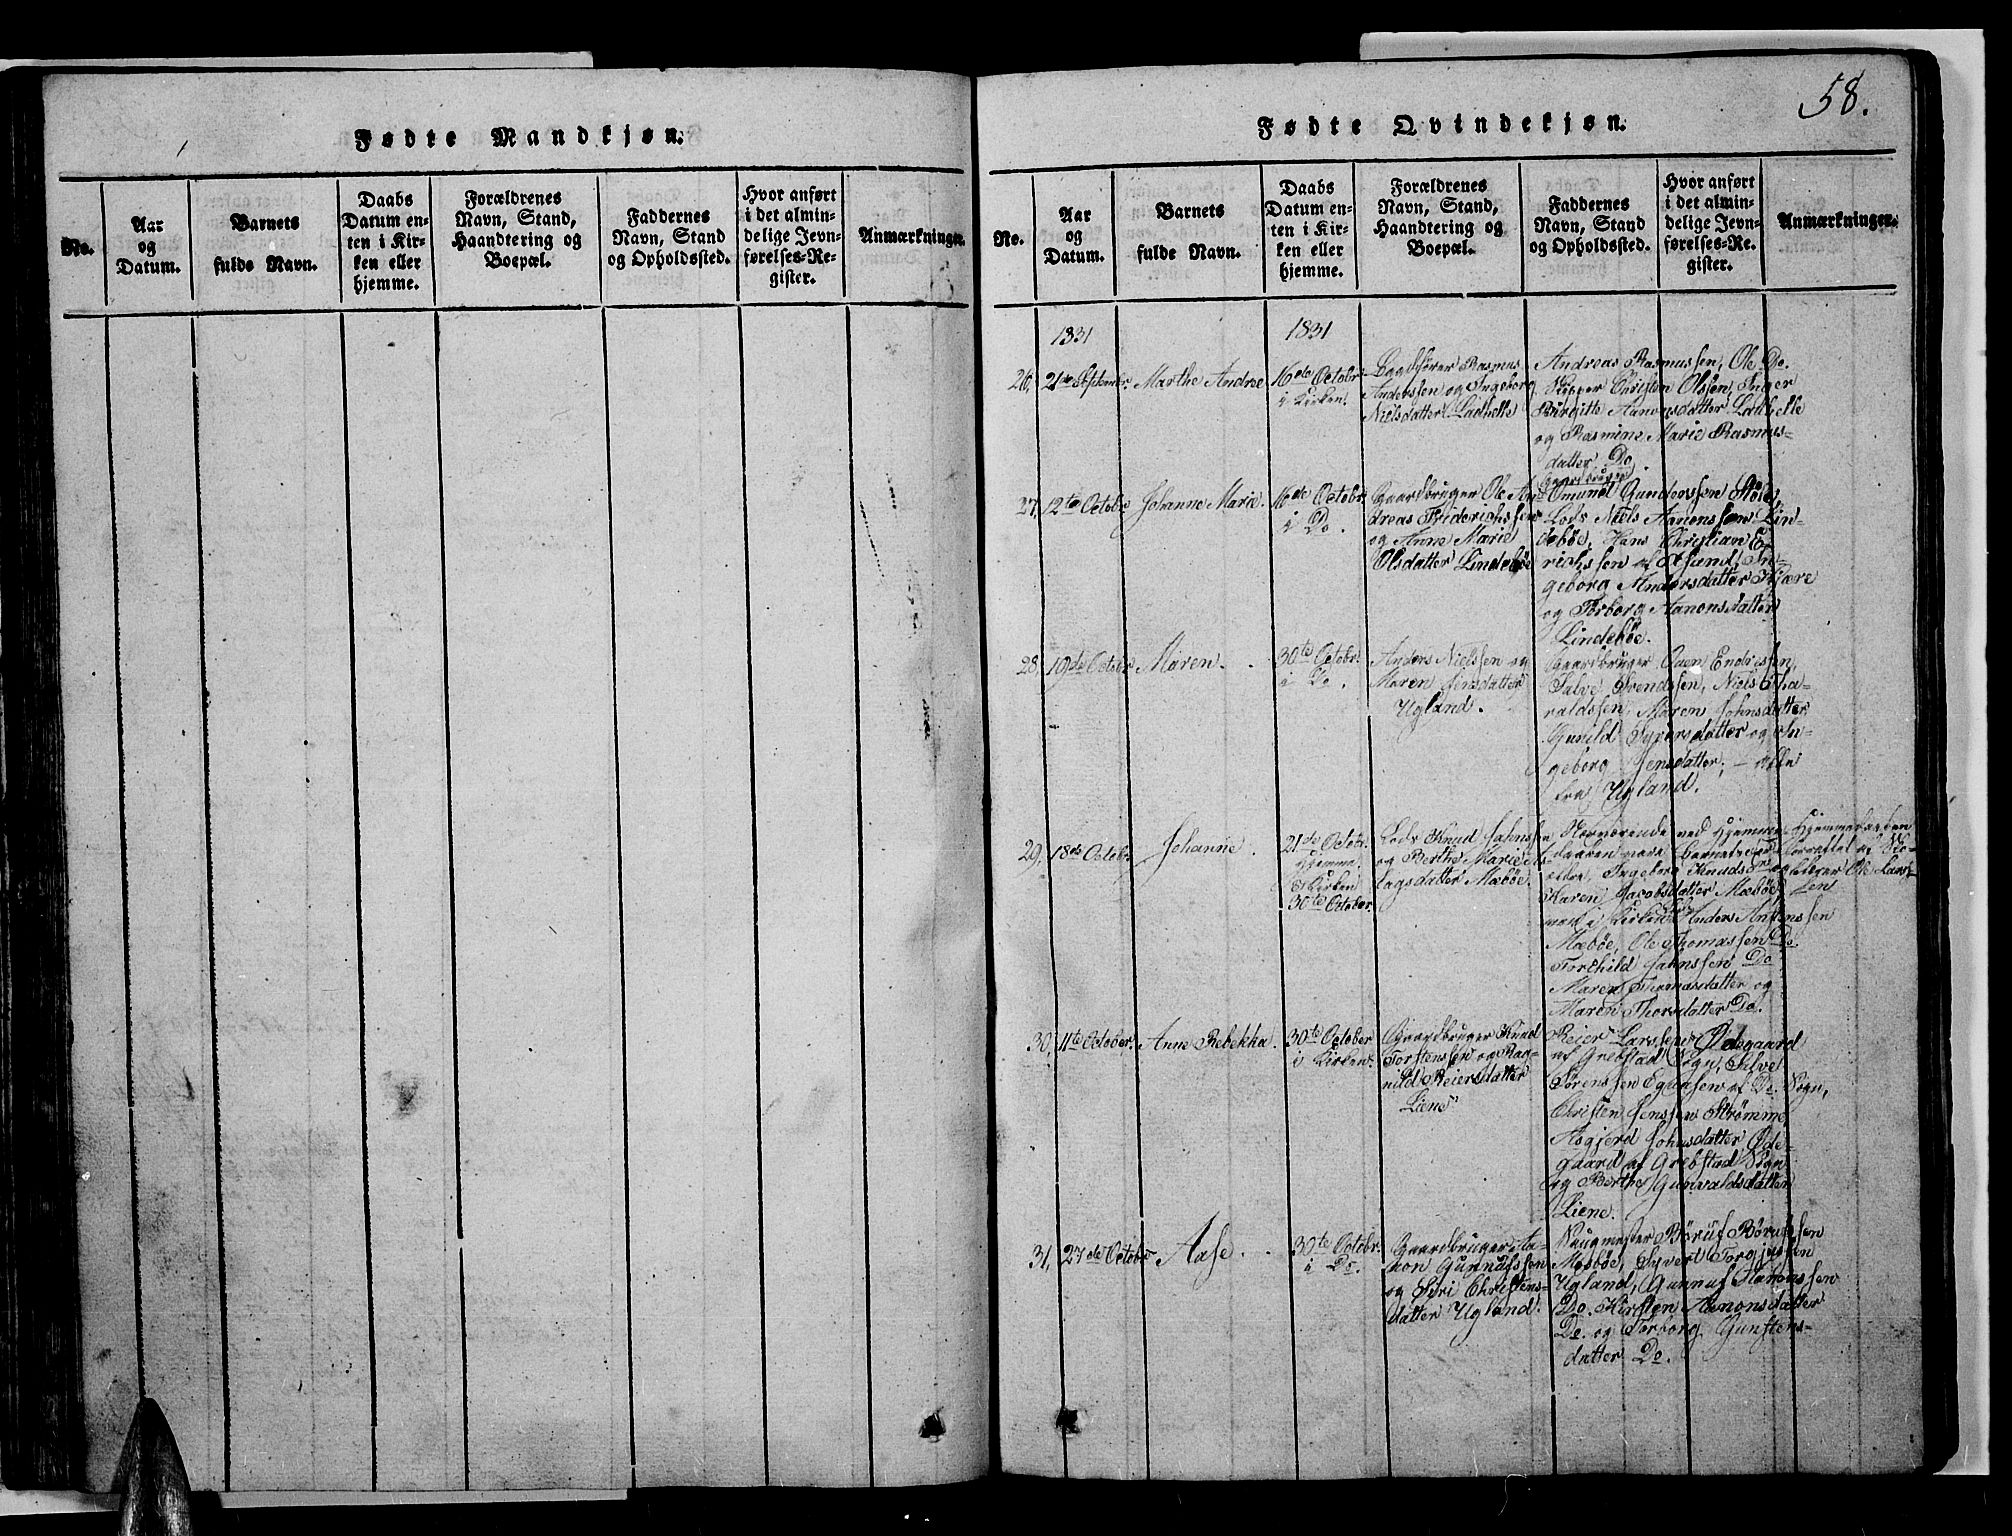 58.
Fødte Mandkjøn.
No.
Aar
og
Datum.
Barnets
fulde Navn.
Daabs
Datum en-
ten i Kir-
ken eller
hjemme.
Forældrenes
Navn, Stand,
Haandtering og
Boepæl.
Faddernes
Navn, Stand
og Opholdssted.
Hvor anført
i det almin-
delige Jevn-
førelses-Re-
gister.
Anmærkninger.
Fødte Qvindekjøn.
No.
Aar
og
Datum.
Barnets
fulde Navn.
Daabs
Datum en-
ten i Kir-
ken eller
hjemme.
Forældrenes
Navn, Stand,
Haandtering og
Boepæl.
Faddernes
Navn, Stand
og Opholdssted.
Hvor anført
i det almin-
delige Jevn-
førelses-Re-
gister.
Anmærkninger.
1831
1831
26,
21de Septembr.
Marthe Andree
16de Octobr.
i Kirken.
Rasmus
Anderssen og Ingeborg
Nielsdatter Ladhelle
Andreas Rasmussen, Ole Do.
Christen Olssen, Inger
Birgitte Aanonsdatter Ladhelle
og Rasmine Marie Rasmus-
datter Do
27,
12te Octobr.
Johanne Marie.
16de Octobr.
i Do.
Gaardbruger Ole An-
dreas Friderichssen
og Anne Marie
Olsdatter Lindebøe
Gaardbruger
Omund Gunderssen
Lods Niels Aanonssen Lin-
debøe, Hans Christian E-
richssen af
geborg Andersdatter Kjære
og Torborg Aanonsdatter
Lindebøe.
28,
19de Octobr
Maren.
30te Octobr.
i Do.
Anders Nielssen og
Maren Jensdatter
Ugland.
Gaardbruger Ouen Endressen,
Salve Svendssen, Niels Tha-
raldssen, Maren Johnsdatter
Gunild Syversdatter og In-
geborg Jensdatter; – alle
fra Ugland.
29,
18de Octobr.
Johanne.
21de Octobr.
Hjemme
I Kirken
30te October.
Lods Knud Jahnssen
og Berthe Marie As-
lagsdatter Mæbøe.
Nærværende ved Hjemme-
daaben vare Barnets For-
ældre, Ingeborg Knudsd. og
Karen Jacobsdatter Mæbøe,
men i Kirken Anders Antonssen
Mæbøe, Ole Thomassen Do.
Torchild Jahnssen Do
Maren Thomasdatter og
Maren Thorsdatter Do.
Hjemmedaaben
forrettet af Sko-
leholder Ole Lars-
sen
30,
11te October.
Anne Rebekka.
30te October
i Kirken.
Gaardbruger Knud
Torstenssen og Rag-
nild Reiersdatter
Liene
Reier Larssen Ødegaard
af Grebstad Sogn, Salve
Sørenssen af Do. Sogn,
Christen Jenssen Strømme
Asgjerd Johnsdatter Øde-
gaard af Grebstad Sogn
og Berthe Gunvaldsdatter
Liene.
31,
27de Octobr
Aase.
30te Octobr.
i Do.
Gaardbruger Aa-
non Gunnufssen
og Siri Christens-
datter Ugland.
Laugmester Børuf Børufssen
Mosbøe, Syvert Torgjussen
Ugland, Gunnuf Aanonssen
Do. Kirsten Aanonsdatter
Do. og Torborg Gunstens-
datter Do.